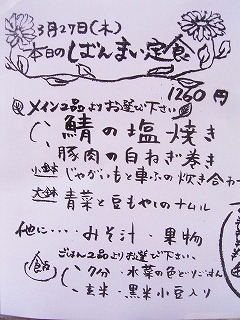 3月27日(木)
本日のしばんまい定食
1260円
メイン2品よりお選び下さい
鯖の塩焼き
豚肉の白ねぎ巻き
小鉢 じゃがいもと車ふの炊き合わ
大鉢 青菜と豆もやしのナムル
他に・・・・みそ汁・果物
ごはん2品よりお選び下さい、
7分・水菜の色どりごはん
玄米・黒米小豆入り